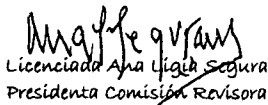 Licenciada Ana Ligia Segura
Presidenta Comisión Revisora